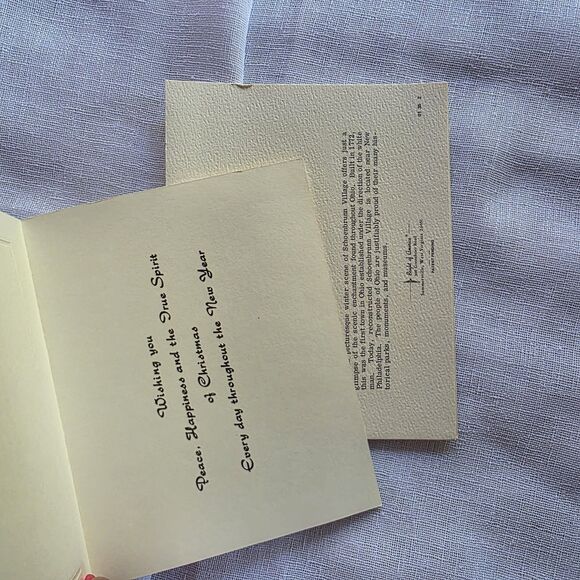 Wishing you
Peace, Happiness and the True Spirit
of Christmas
Every day throughout the New Year
picturesque winter scene of Schoenbrunn Village offers just a
glimpse of the scenic enchantment found throughout Ohio. Built in 1772,
this was the first town in Ohio established under the direction of the white
man. Today, reconstructed Schoenbrunn Village is located near New
Philadelphia. The people of Ohio are justifiably proud of their many his-
torical parks, monuments, and museums.
of America
West Virginia